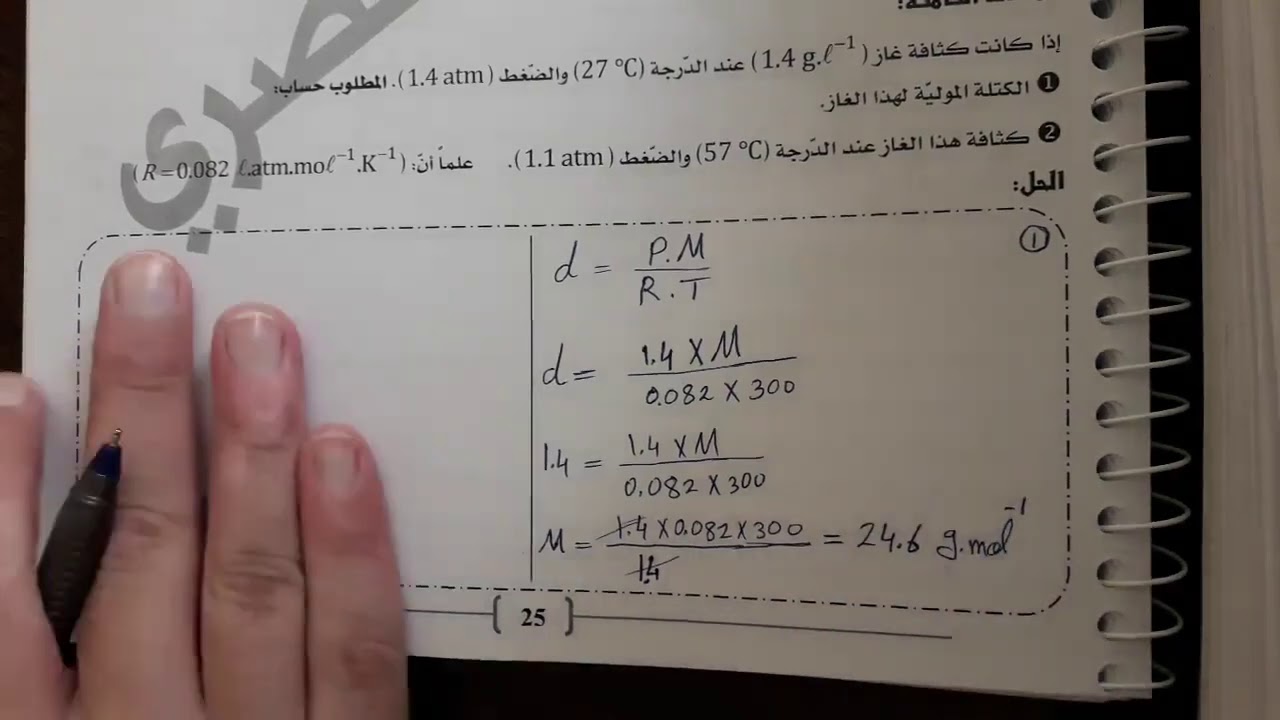 إذا كانت كثافة غاز (1.4 g.ℓ⁻¹) عند الدّرجة (27 °C) والضّغط (1.4 atm). المطلوب حساب:
❶ الكتلة الموليّة لهذا الغاز.
❷ كثافة هذا الغاز عند الدّرجة (57 °C) والضّغط (1.1 atm). علماً أنّ: (R=0.082 ℓ.atm.moℓ⁻¹.K⁻¹)
الحل:
①
d = P.M / R.T
d = 1.4 × M / 0.082 × 300
1.4 = 1.4 × M / 0.082 × 300
M = 1.4 × 0.082 × 300 / 1.4 = 24.6 g.mol⁻¹
25